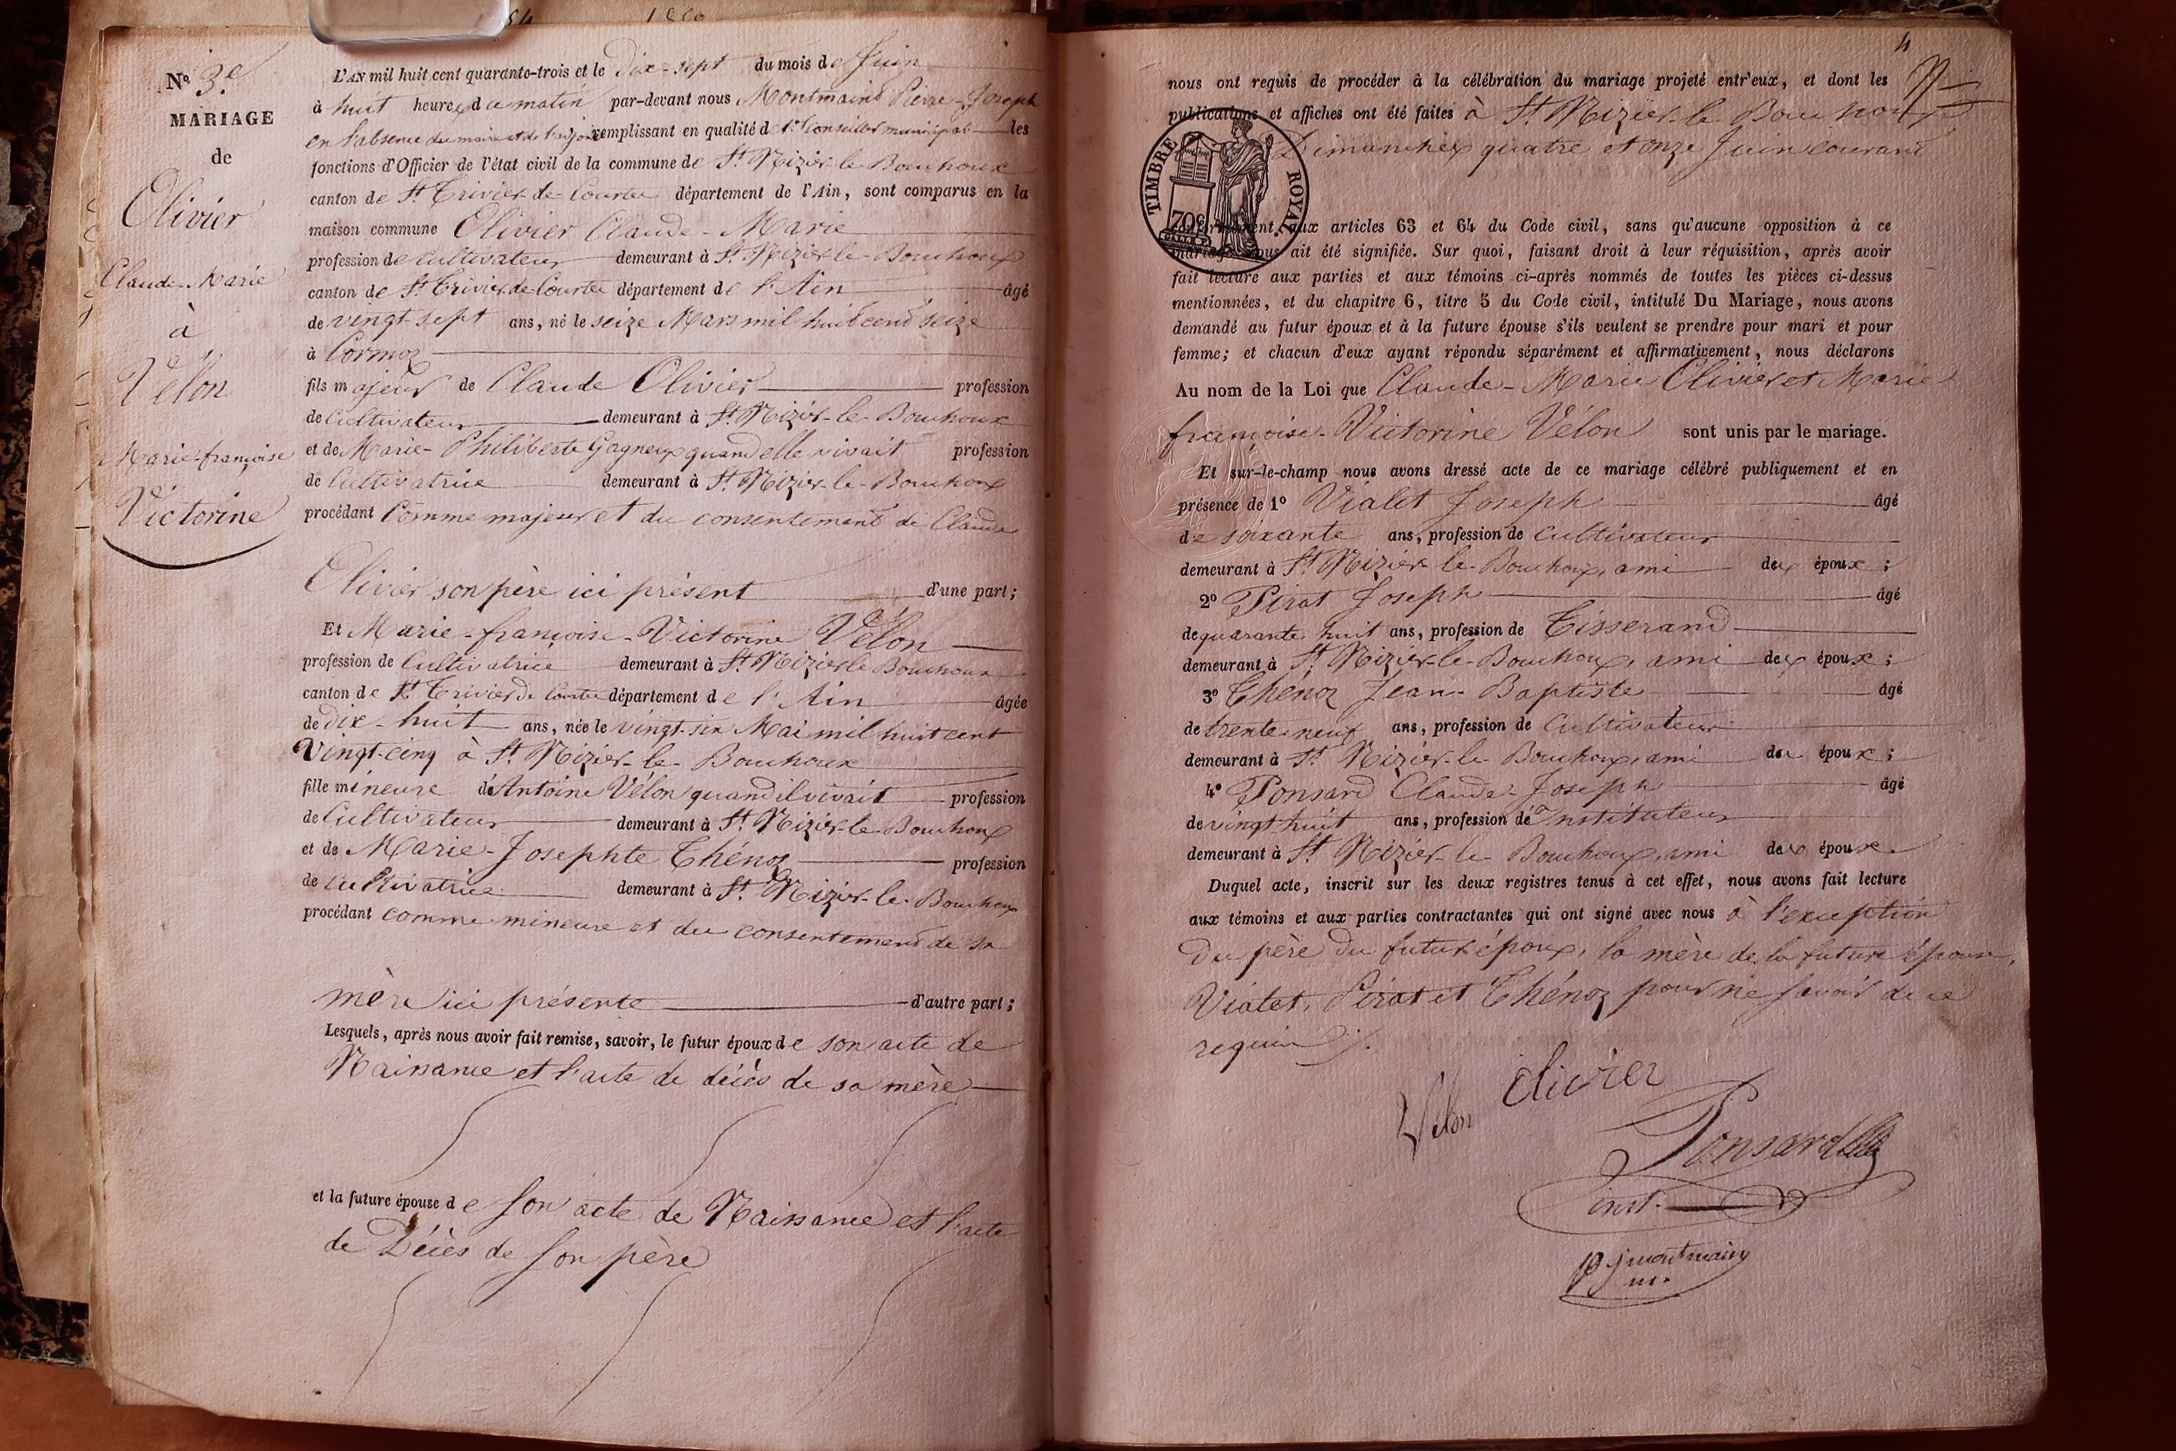 Nº 3.e
MARIAGE
de
Olivier
Claude-Marie
à
Vélon
Marie-françoise
Victorine
L'AN mil huit cent quarante-trois et le Dix-sept du mois de Juin
à huit heures du matin par-devant nous Montmain Pierre-Joseph
en l'absence du maire et de l'adjoint remplissant en qualité de 1er Conseiller municipal les
fonctions d'Officier de l'état civil de la commune de St. Nizier-le-Bouchoux
canton de St. Trivier-de-Courtes département de l'Ain, sont comparus en la
maison commune Olivier Claude-Marie
profession de Cultivateur demeurant à St. Nizier-le-Bouchoux
canton de St. Trivier de Courtes département de l'Ain âgé
de vingt-sept ans, né le seize Mars mil huit cent seize
à Cormoz
fils majeur de Claude Olivier profession
de Cultivateur demeurant à St. Nizier-le-Bouchoux
et de Marie-Philiberte Gagneux quand elle vivait profession
de Cultivatrice demeurant à St. Nizier-le-Bouchoux
procédant Comme majeur et du consentement de Claude
Olivier son père ici présent d'une part;
Et Marie-françoise-Victorine Vélon
profession de Cultivatrice demeurant à St. Nizier le Bouchoux
canton de St. Trivier de Courtes département de l'Ain âgée
de dix-huit ans, née le vingt-six Mai mil huit cent
vingt-cinq à St. Nizier-le-Bouchoux
fille mineure de Antoine Vélon quand il vivait profession
de Cultivateur demeurant à St. Nizier-le-Bouchoux
et de Marie-Josephte Thénoz profession
de Cultivatrice demeurant à St. Nizier-le-Bouchoux
procédant comme mineure et du consentement de sa
mère ici présente d'autre part;
Lesquels, après nous avoir fait remise, savoir, le futur époux de son acte de
Naissance et l'acte de décès de sa mère
et la future épouse de son acte de Naissance et l'acte
de Décès de son père
4
nous ont requis de procéder à la célébration du mariage projeté entr'eux, et dont les
publications et affiches ont été faites à St. Nizier-le-Bouchoux
Dimanches quatre et onze Juin courant
TIMBRE ROYAL
70 c
conformément aux articles 63 et 64 du Code civil, sans qu'aucune opposition à ce
mariage nous ait été signifiée. Sur quoi, faisant droit à leur réquisition, après avoir
fait lecture aux parties et aux témoins ci-après nommés de toutes les pièces ci-dessus
mentionnées, et du chapitre 6, titre 5 du Code civil, intitulé Du Mariage, nous avons
demandé au futur époux et à la future épouse s'ils veulent se prendre pour mari et pour
femme; et chacun d'eux ayant répondu séparément et affirmativement, nous déclarons
Au nom de la Loi que Claude-Marie Olivier et Marie
françoise-Victorine Vélon sont unis par le mariage.
Et sur-le-champ nous avons dressé acte de ce mariage célébré publiquement et en
présence de 1º Vialet Joseph âgé
de soixante ans, profession de Cultivateur
demeurant à St. Nizier-le-Bouchoux, ami des époux;
2º Pirat Joseph âgé
de quarante huit ans, profession de Tisserand
demeurant à St. Nizier-le-Bouchoux, ami des époux;
3º Thénoz Jean-Baptiste âgé
de trente-neuf ans, profession de Cultivateur
demeurant à St. Nizier-le-Bouchoux, ami des époux;
4º Ponsard Claude-Joseph âgé
de vingt-huit ans, profession d'Instituteur
demeurant à St. Nizier-le-Bouchoux, ami des époux.
Duquel acte, inscrit sur les deux registres tenus à cet effet, nous avons fait lecture
aux témoins et aux parties contractantes qui ont signé avec nous à l'exception
du père du futur époux, la mère de la future épouse,
Vialet, Pirat et Thénoz pour ne savoir de ce
requis
Vélon Olivier
Ponsard
inst.
pj montmain
m.